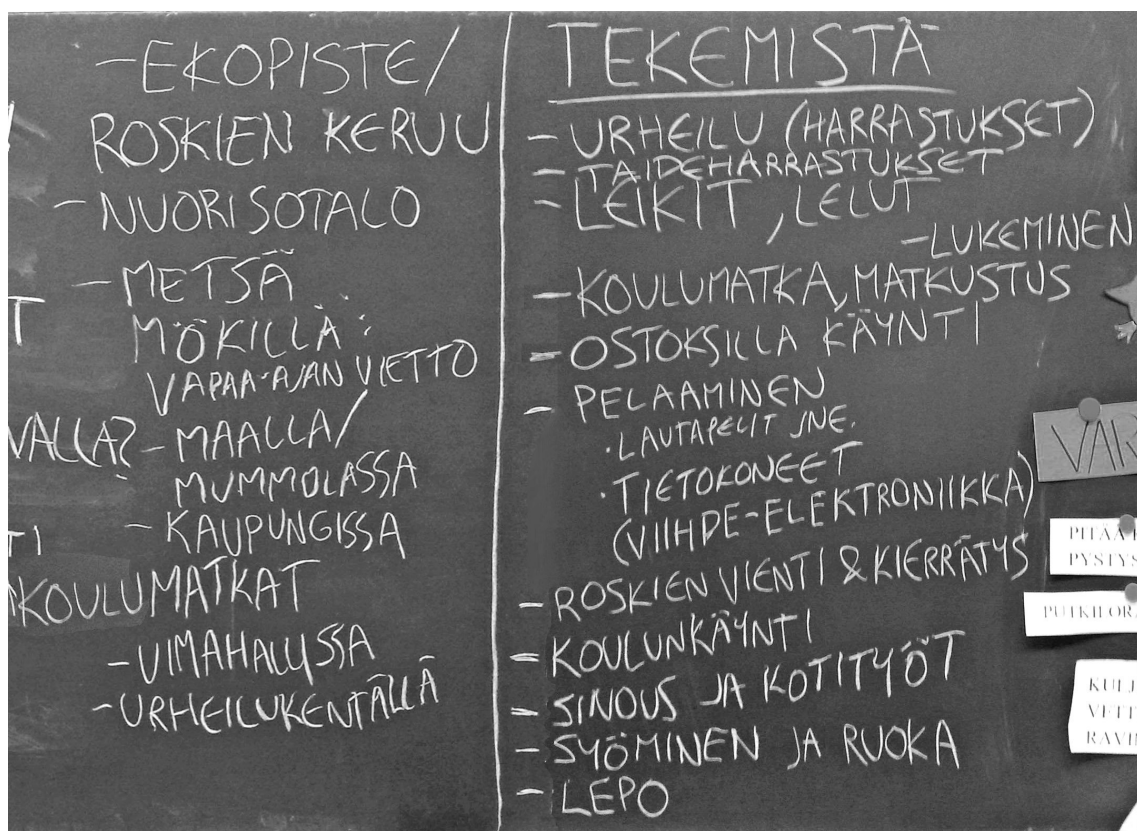 -EKOPISTE/
ROSKIEN KERUU
- NUORISOTALO
- METSÄ
MÖKILLÄ:
VAPAA-AJAN VIETTO
VALLA? - MAALLA/
MUMMOLASSA
- KAUPUNGISSA
TI
KOULUMATKAT
- UIMAHALLISSA
- URHEILUKENTÄLLÄ
TEKEMISTÄ
- URHEILU (HARRASTUKSET)
- TAIDEHARRASTUKSET
- LEIKIT, LELUT
- LUKEMINEN
- KOULUMATKA, MATKUSTUS
- OSTOKSILLA KÄYNTI
- PELAAMINEN
· LAUTAPELIT JNE.
· TIETOKONEET
(VIIHDE-ELEKTRONIIKKA)
- ROSKIEN VIENTI & KIERRÄTYS
- KOULUNKÄYNTI
- SINOUS JA KOTITYÖT
- SYÖMINEN JA RUOKA
- LEPO
VAR
PITÄÄ
PYSTYS
PUTKILO
KULJ
VETT
RAVI